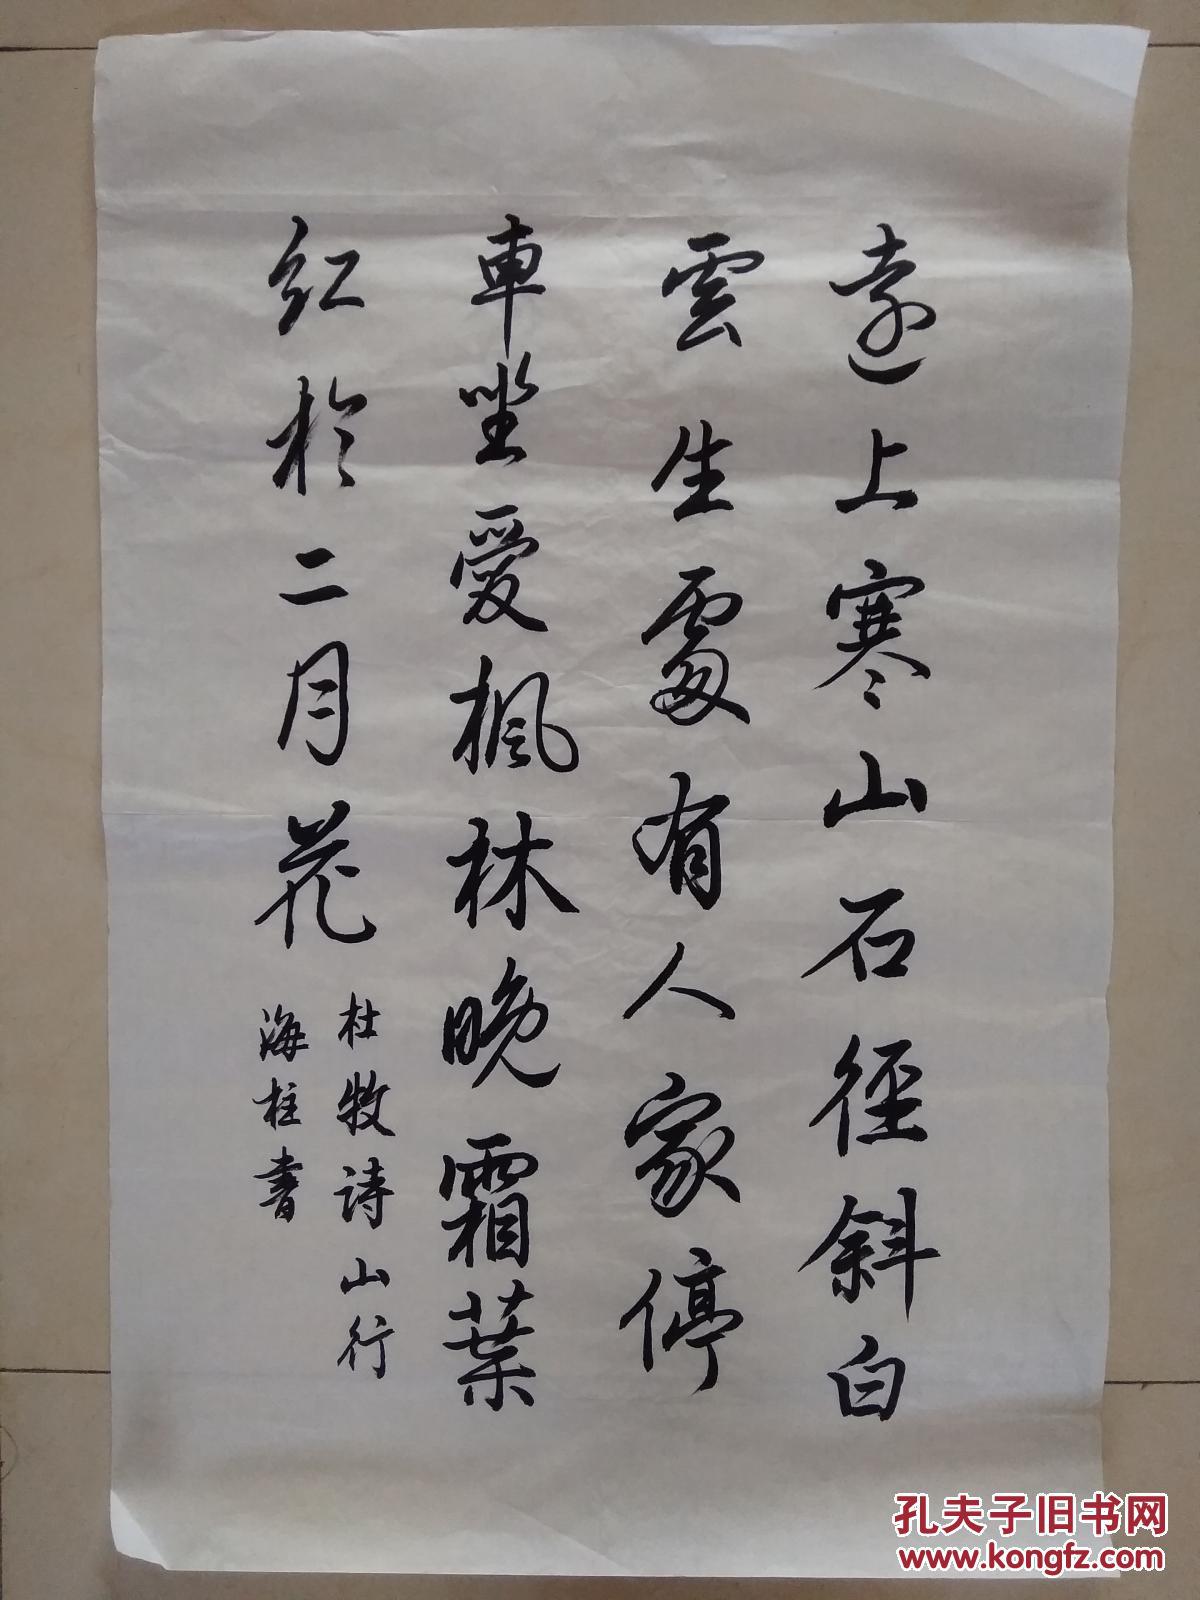 遠上寒山石徑斜白
雲生處有人家停
車坐愛楓林晚霜葉
红於二月花
杜牧诗山行
海柱書
孔夫子旧书网
www.kongfz.com